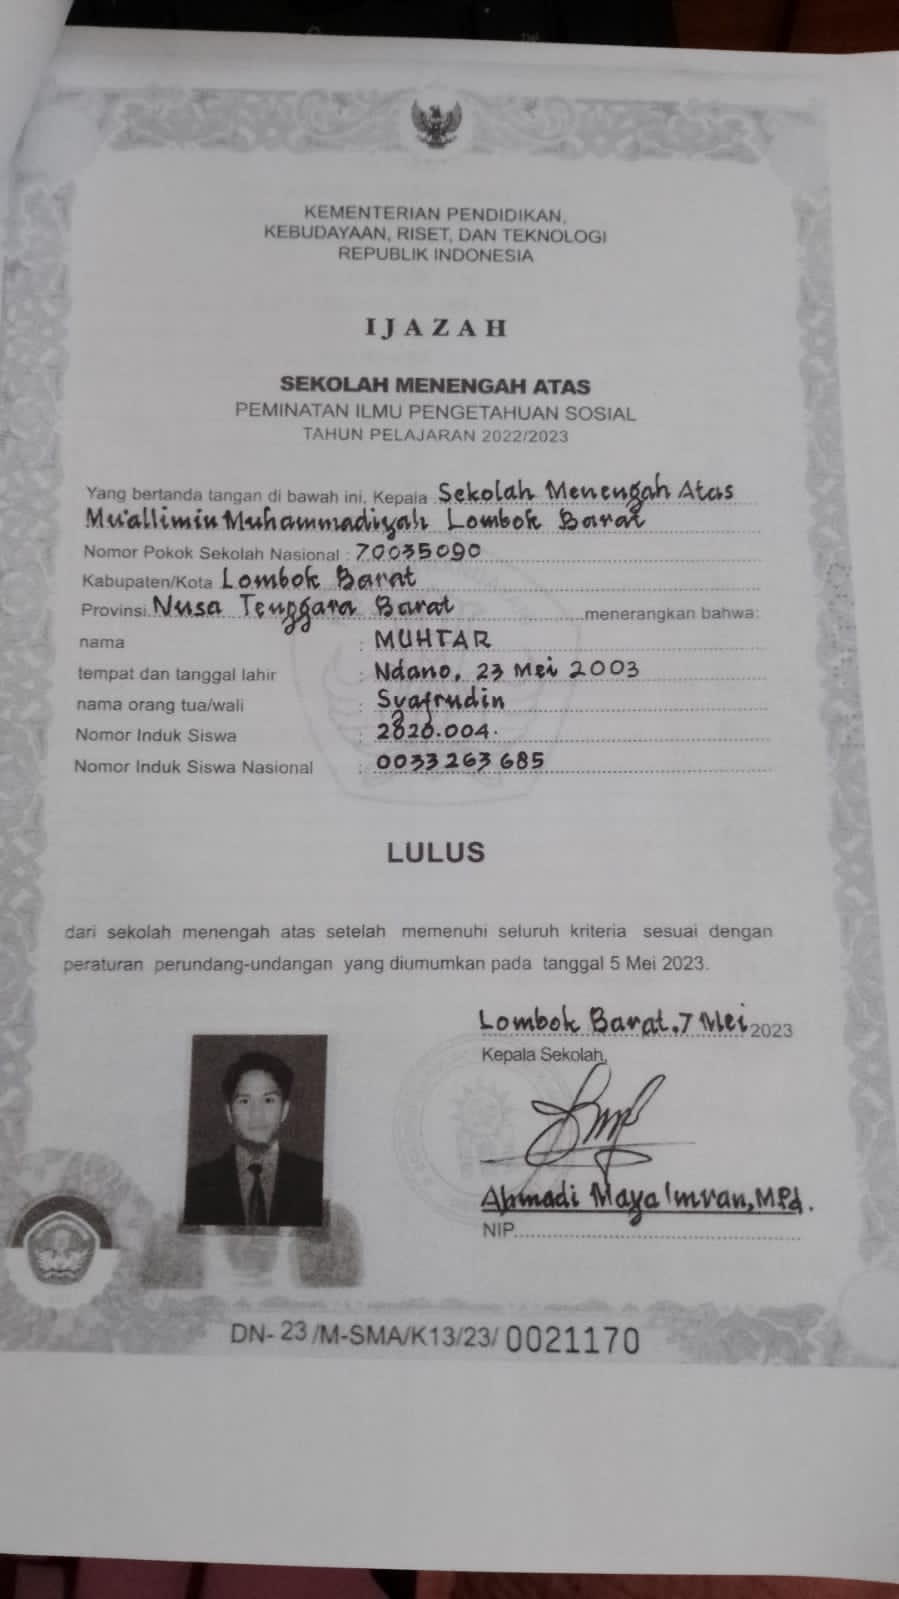 KEMENTERIAN PENDIDIKAN,
KEBUDAYAAN, RISET, DAN TEKNOLOGI
REPUBLIK INDONESIA
IJAZAH
SEKOLAH MENENGAH ATAS
PEMINATAN ILMU PENGETAHUAN SOSIAL
TAHUN PELAJARAN 2022/2023
Yang bertanda tangan di bawah ini, Kepala Sekolah Menengah Atas
Mu'allimin Muhammadiyah Lombok Barat
Nomor Pokok Sekolah Nasional : 70035090
Kabupaten/Kota Lombok Barat
Provinsi Nusa Tenggara Barat menerangkan bahwa:
nama : MUHTAR
tempat dan tanggal lahir : Ndano, 23 Mei 2003
nama orang tua/wali : Syafrudin
Nomor Induk Siswa : 2820.004.
Nomor Induk Siswa Nasional : 0033263685
LULUS
dari sekolah menengah atas setelah memenuhi seluruh kriteria sesuai dengan
peraturan perundang-undangan yang diumumkan pada tanggal 5 Mei 2023.
Lombok Barat, 7 Mei 2023
Kepala Sekolah,
Ahmadi Maya Imran, M.Pd.
NIP
DN-23/M-SMA/K13/23/0021170